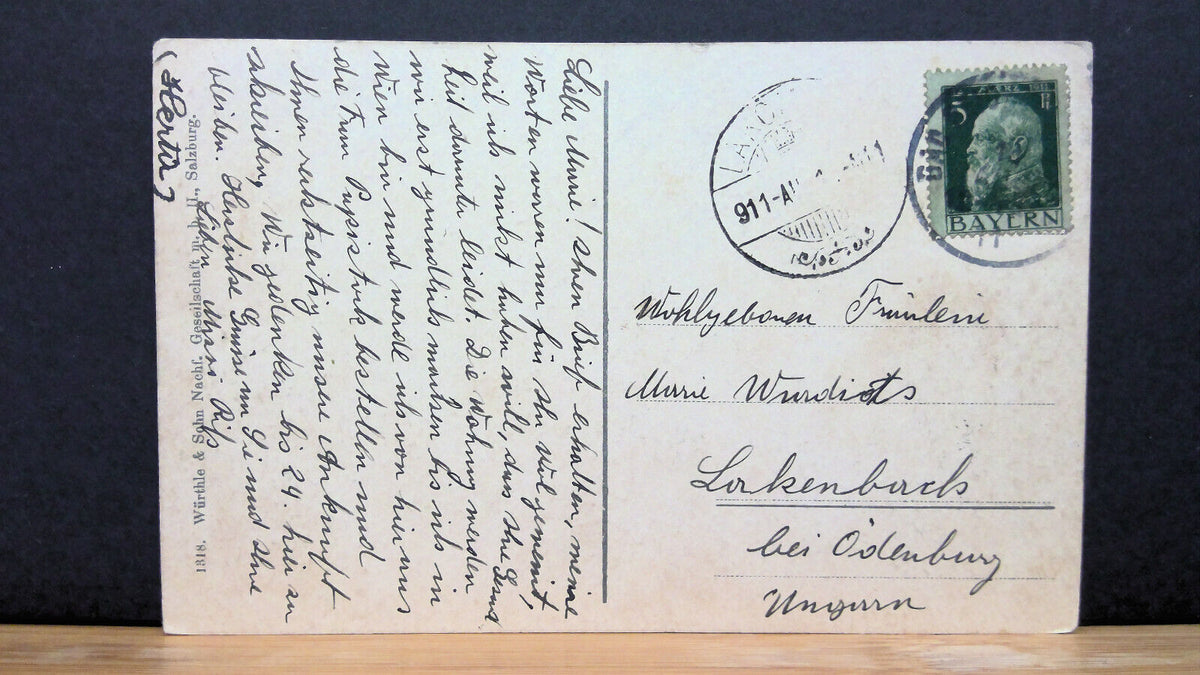 Liebe Marie! Ihren Brief erhalten, meine
Worten waren nur für Sie wolgemeint,
weil ich nicht haben will, das Ihre Gesund
heit darunter leidet. Die Wohnung werden
wir erst gründlich machen bis ich in
Wien bin und werde ich von hier aus
die Frau bestellen und
Ihnen rechtzeitig unsere Ankunft
schreiben, Wir gedenken bis 24. hier zu
bleiben. Herzliche Grüsse an Sie und Ihre
Lieben
(Herta)
1318. Würthle & Sohn Nachf. Gesellschaft m. b. H., Salzburg.
911-
5
BAYERN
Wohlgeboren Fräulein
Marie Wurdits
Lakenbach
bei Ödenburg
Ungarn